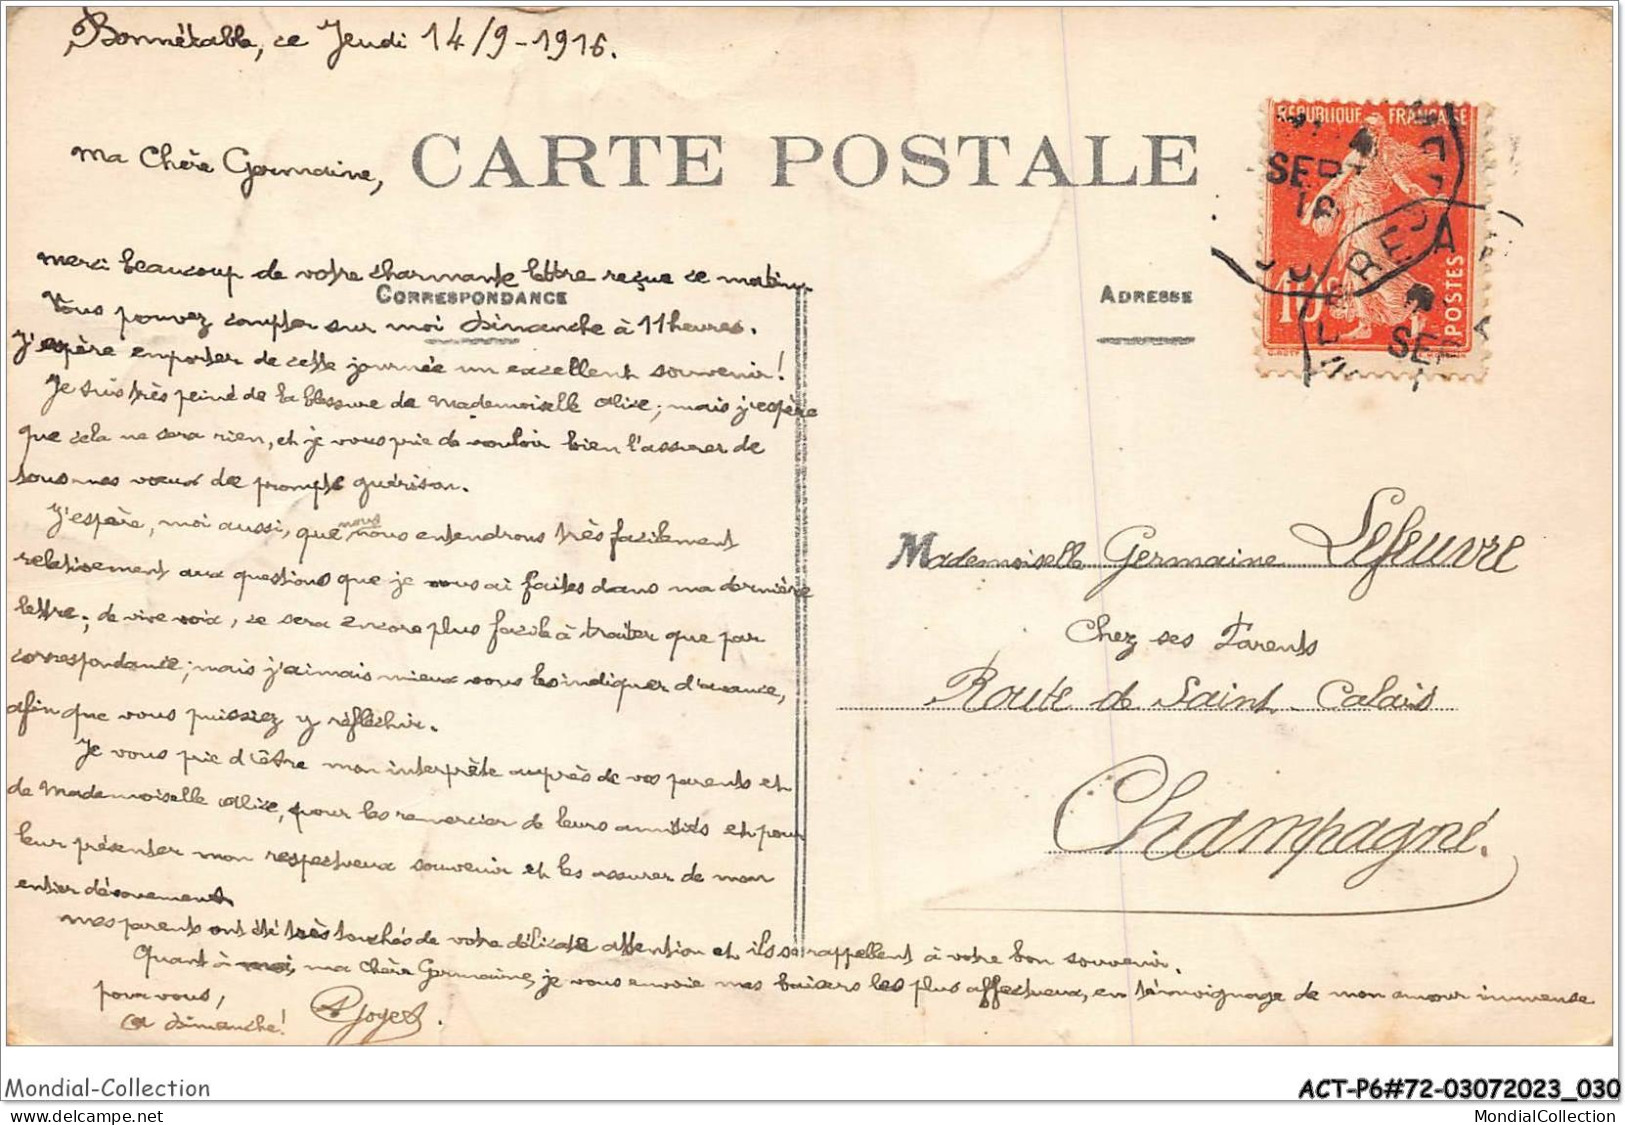 Bonnétable, ce Jeudi 14/9-1916.
Ma Chère Germaine,
CARTE POSTALE
Merci beaucoup de votre charmante lettre reçue ce matin.
CORRESPONDANCE
Vous pouvez compter sur moi dimanche à 11 heures.
J'espère emporter de cette journée un excellent souvenir!
Je suis très peiné de la blessure de Mademoiselle Alice; mais j'espère
que cela ne sera rien, et je vous prie de vouloir bien l'assurer de
tous mes vœux de prompte guérison.
J'espère, moi aussi, que nous nous entendrons très facilement
relativement aux questions que je vous ai faites dans ma dernière
lettre; de vive voix, ce sera encore plus facile à traiter que par
correspondance; mais j'aimais mieux vous les indiquer d'avance,
afin que vous puissiez y réfléchir.
Je vous prie d'être mon interprète auprès de vos parents et
de Mademoiselle Alice, pour les remercier de leurs amitiés et pour
leur présenter mon respectueux souvenir et les assurer de mon
entier dévouement
Mes parents ont été très touchés de votre délicate attention et ils se rappellent à votre bon souvenir.
Quant à moi, ma Chère Germaine, je vous envoie mes baisers les plus affectueux, en témoignage de mon amour immense
pour vous,
à dimanche!
Goyet.
REPUBLIQUE FRANÇAISE
POSTES
10
SEP
16
SEP
ADRESSE
Mademoiselle Germaine Lefeuvre
Chez ses Parents
Route de Saint-Calais
Champagné.
Mondial-Collection
ACT-P6#72-03072023_030
www.delcampe.net
MondialCollection